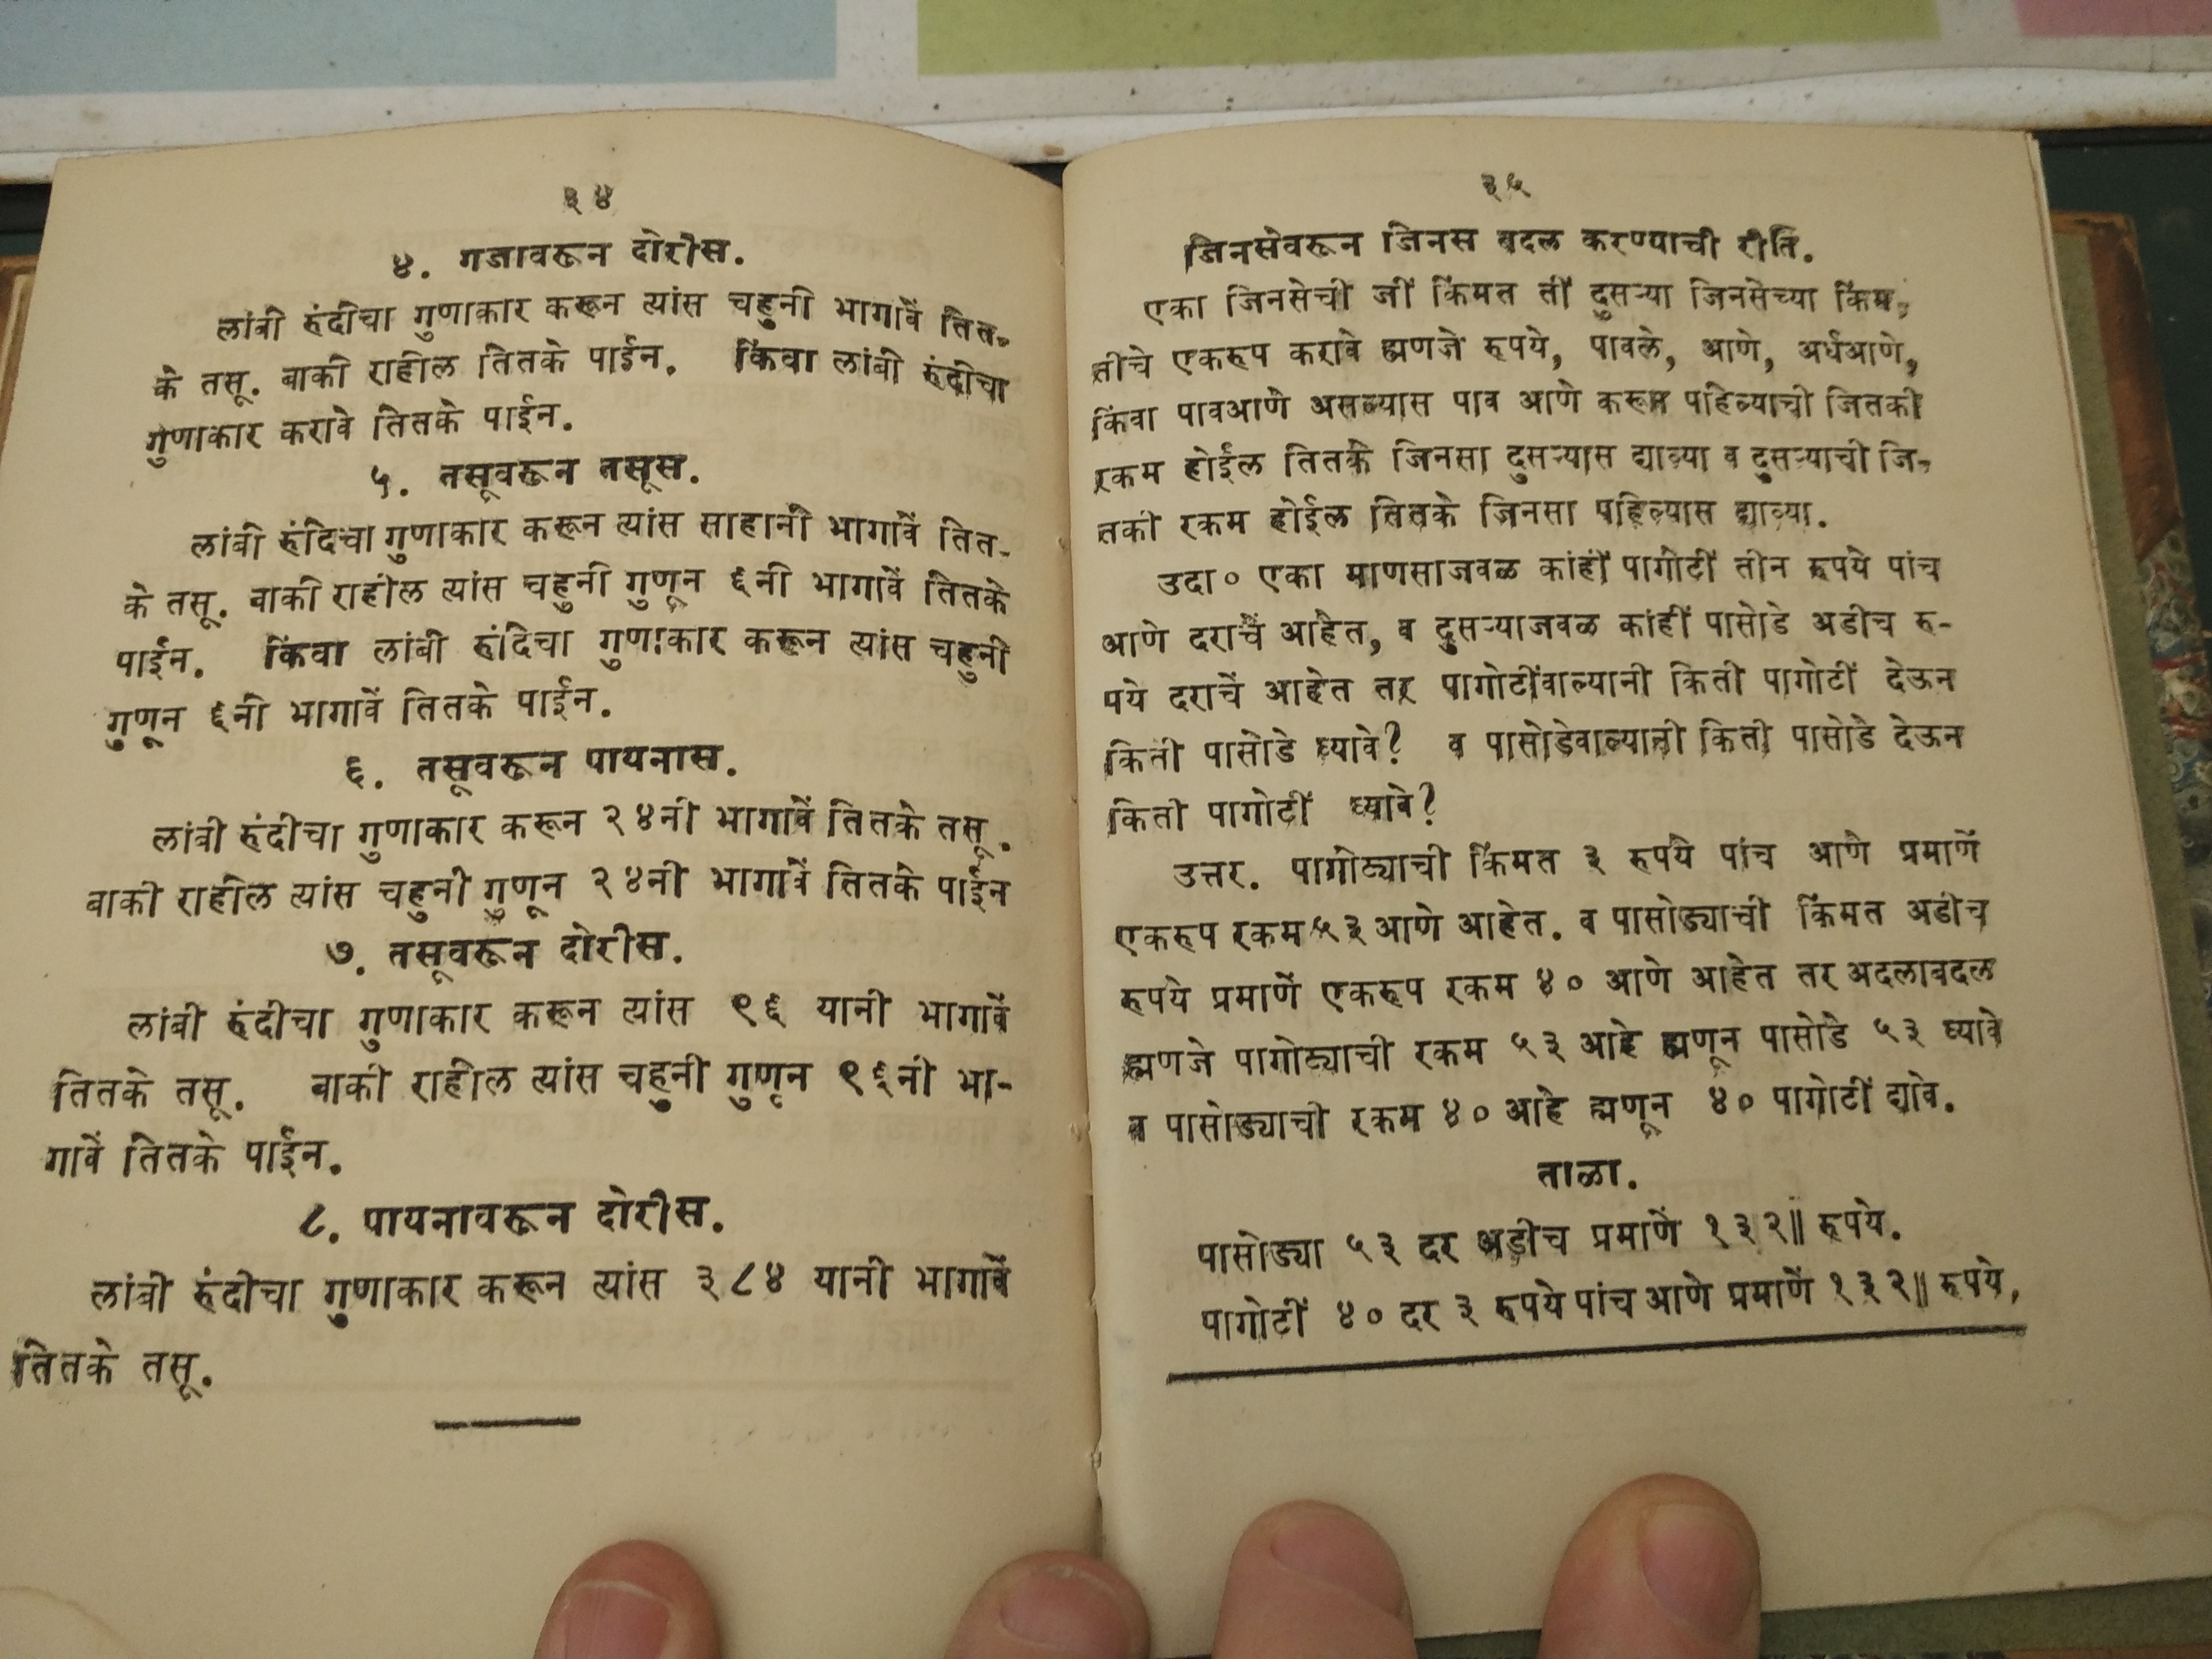 ३४
४. गजावरून दोरीस.
लांबी रुंदीचा गुणाकार करून त्यांस चहुनी भागावें तित-
के तसू. बाकी राहील तितके पाईन. किंवा लांबी रुंदीचा
गुणाकार करावे तितके पाईन.
५. तसूवरून तसूस.
लांबी रुंदिचा गुणाकार करून त्यांस साहानी भागावें तित-
के तसू. बाकी राहील त्यांस चहुनी गुणून ६नी भागावें तितके
पाईन. किंवा लांबी रुंदिचा गुणाकार करून त्यांस चहुनी
गुणून ६नी भागावें तितके पाईन.
६. तसूवरून पायनास.
लांबी रुंदीचा गुणाकार करून २४नी भागावें तितके तसू.
बाकी राहील त्यांस चहुनी गुणून २४नी भागावें तितके पाईन
७. तसूवरून दोरीस.
लांबी रुंदीचा गुणाकार करून त्यांस ९६ यानी भागावें
तितके तसू. बाकी राहील त्यांस चहुनी गुणून ९६नी भा-
गावें तितके पाईन.
८. पायनावरून दोरीस.
लांबी रुंदीचा गुणाकार करून त्यांस ३८४ यानी भागावें
तितके तसू.
३५
जिनसेवरून जिनस बदल करण्याची रीति.
एका जिनसेची जीं किंमत तीं दुसऱ्या जिनसेच्या किंम-
तीचे एकरूप करावे ह्मणजे रुपये, पावले, आणे, अर्धआणे,
किंवा पावआणे असल्यास पाव आणे करून पहिल्याची जितकी
रकम होईल तितके जिनसा दुसऱ्यास द्याव्या व दुसऱ्याची जि-
तकी रकम होईल तितके जिनसा पहिल्यास द्याव्या.
उदा० एका माणसाजवळ कांहीं पागोटीं तीन रुपये पांच
आणे दराचें आहेत, व दुसऱ्याजवळ कांहीं पासोडे अडीच रु-
पये दराचें आहेत तर पागोटींवाल्यानी किती पागोटीं देऊन
किती पासोडे घ्यावे? व पासोडेवाल्यानी किती पासोडे देऊन
किती पागोटीं घ्यावे?
उत्तर. पागोट्याची किंमत ३ रुपये पांच आणे प्रमाणें
एकरूप रकम ५३ आणे आहेत. व पासोड्याची किंमत अडीच
रुपये प्रमाणें एकरूप रकम ४० आणे आहेत तर अदलाबदल
ह्मणजे पागोट्याची रकम ५३ आहे ह्मणून पासोडे ५३ घ्यावे
व पासोड्याची रकम ४० आहे ह्मणून ४० पागोटीं द्यावे.
ताळा.
पासोड्या ५३ दर अडीच प्रमाणें १३२॥ रुपये.
पागोटीं ४० दर ३ रुपये पांच आणे प्रमाणें १३२॥ रुपये.